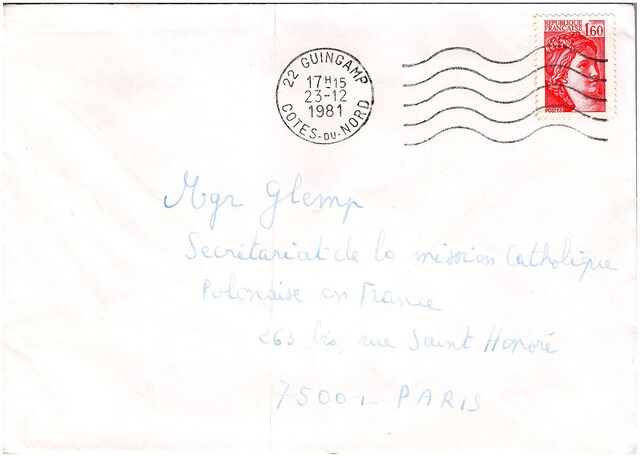 22 GUINGAMP
17H15
23-12
1981
COTES-DU-NORD
REPUBLIQUE
FRANCAISE
1,60
POSTES
Mgr Glemp
Secrétariat de la mission Catholique
Polonaise en France
263 bis, rue Saint Honoré
75001 PARIS